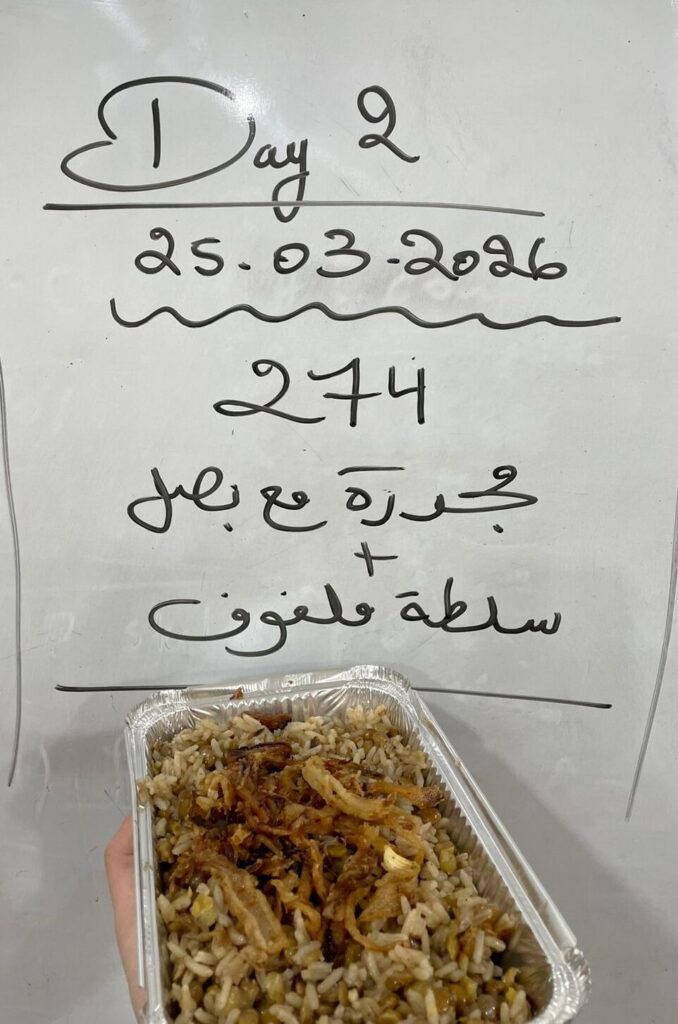 Day 2
25.03.2026
274
مجدرة مع بصل
+
سلطة ملفوف